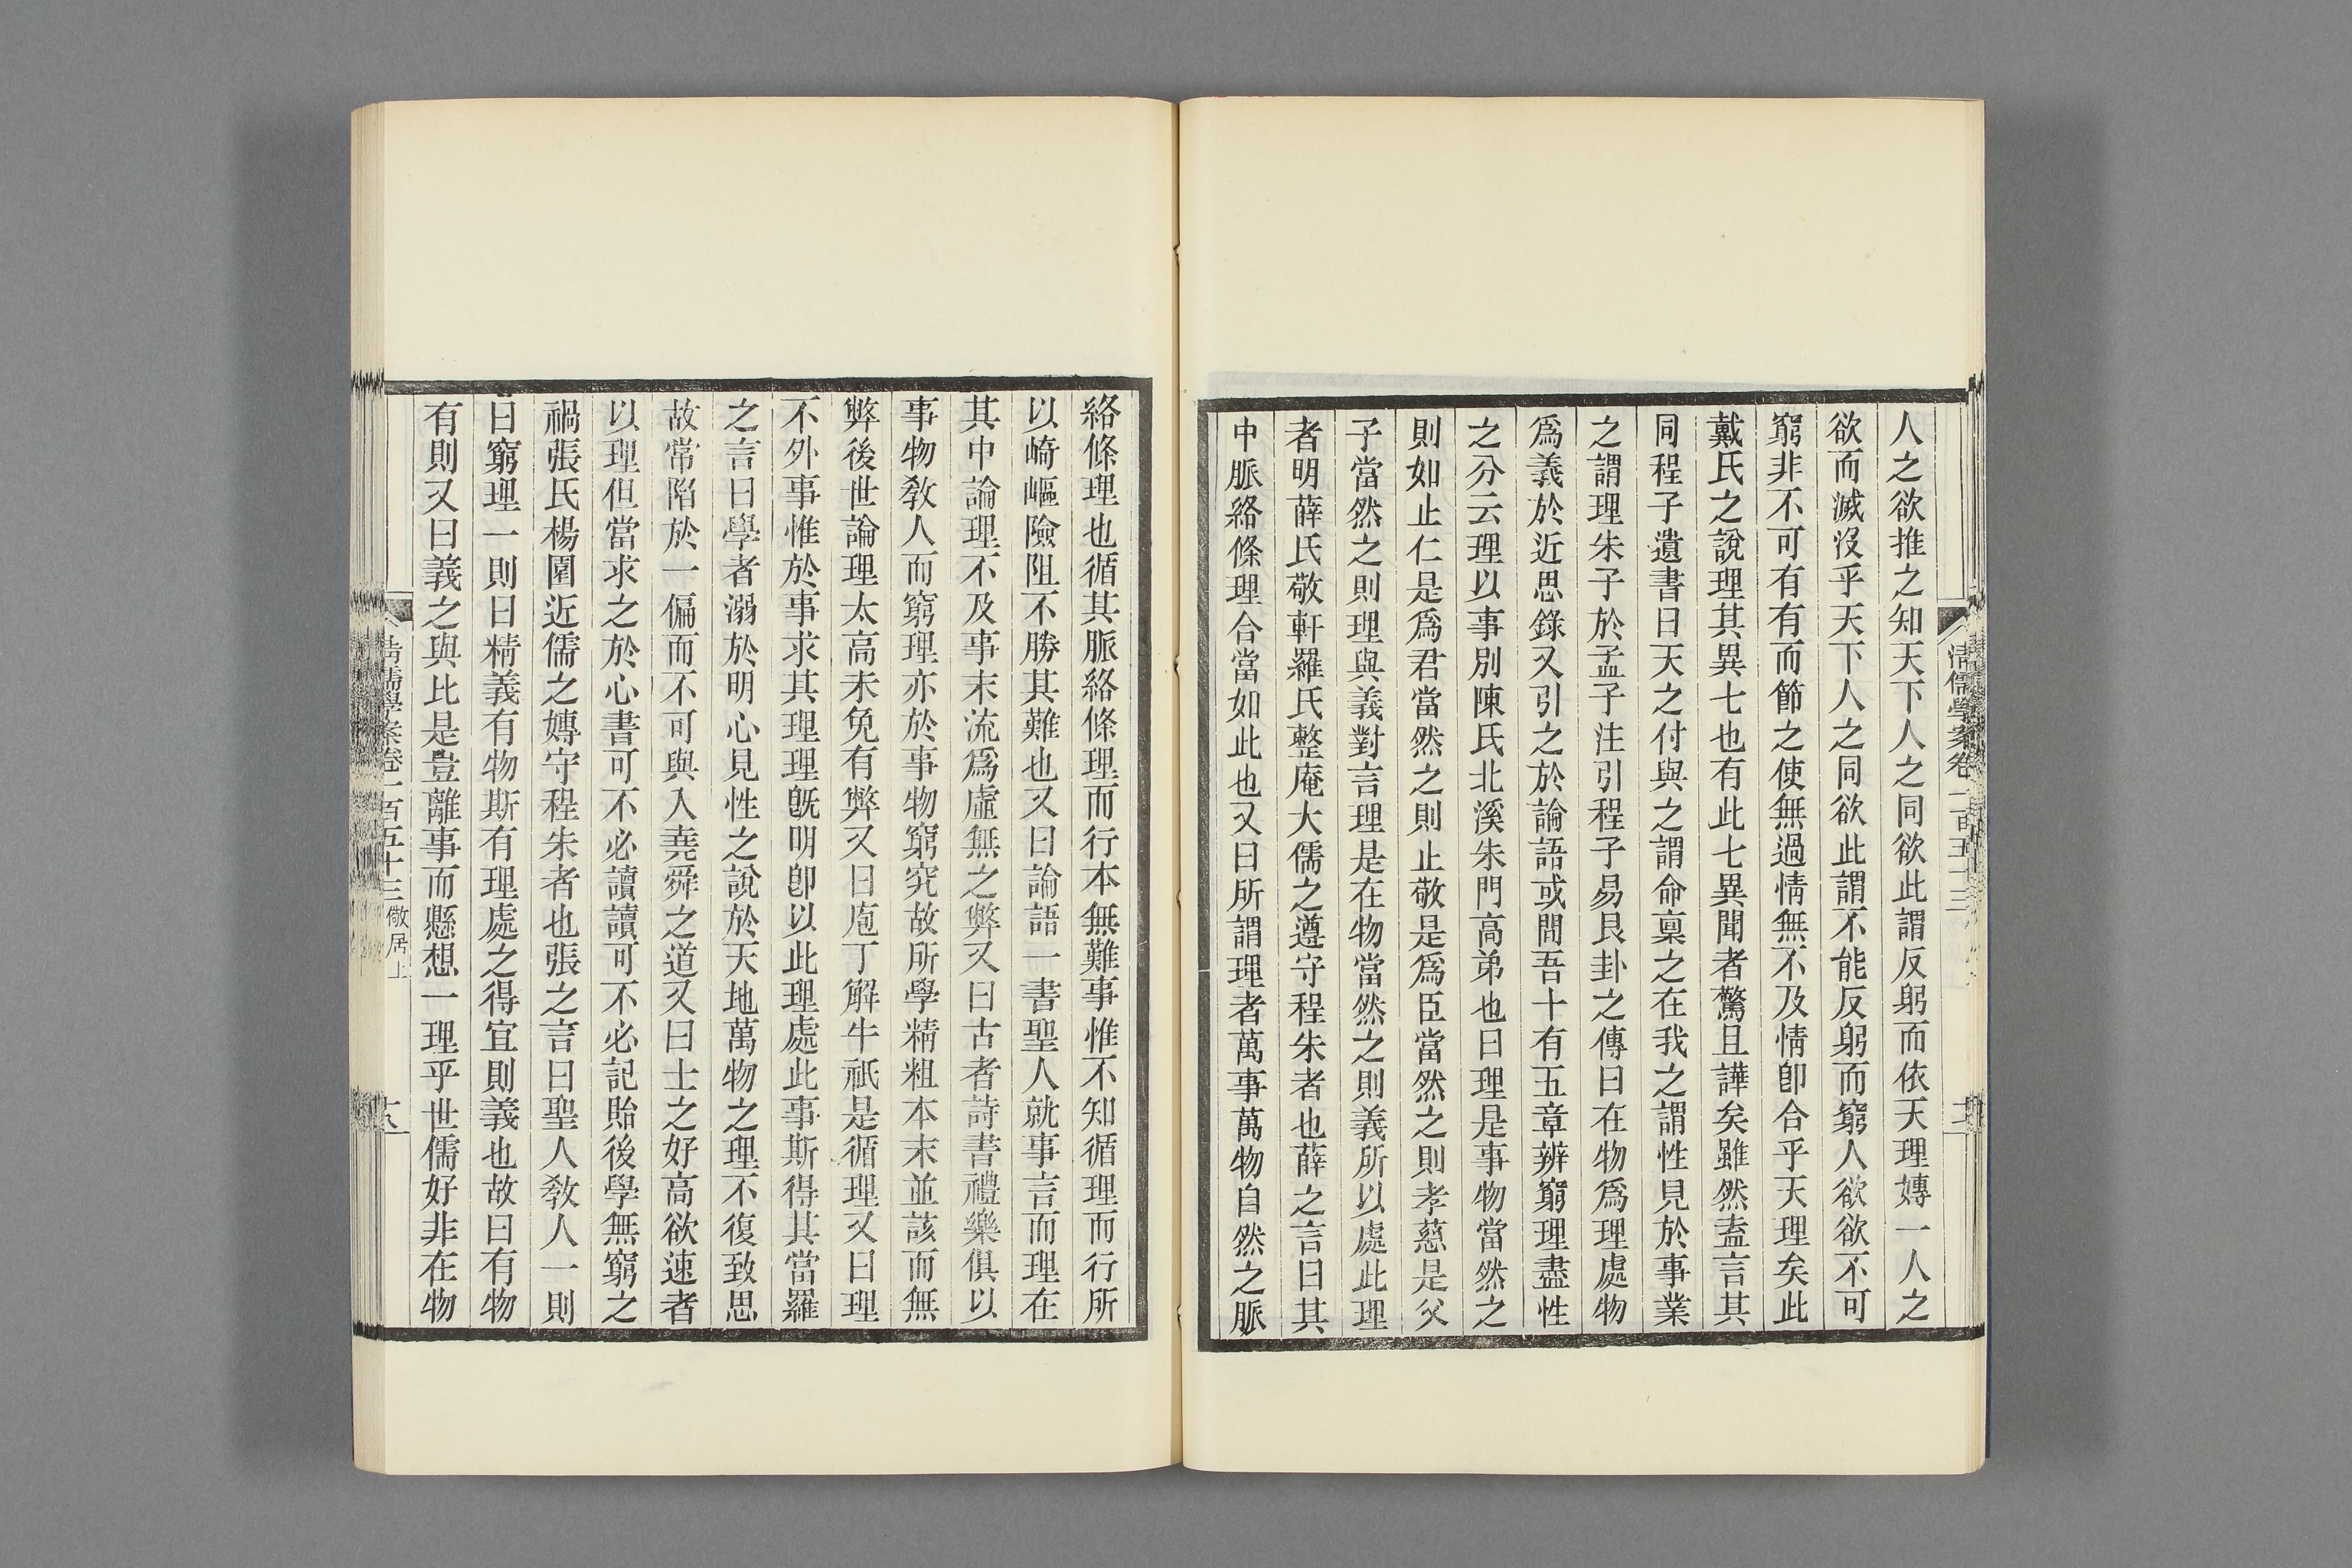 人之欲推之知天下人之同欲此謂反躬而依天理嫥一人之
欲而滅沒乎天下人之同欲此謂不能反躬而窮人欲欲不可
窮非不可有有而節之使無過情無不及情卽合乎天理矣此
戴氏之說理其異七也有此七異聞者驚且譁矣雖然盍言其
同程子遺書曰天之付與之謂命稟之在我之謂性見於事業
之謂理朱子於孟子注引程子易艮卦之傳曰在物爲理處物
爲義於近思錄又引之於論語或問吾十有五章辨窮理盡性
之分云理以事別陳氏北溪朱門高弟也曰理是事物當然之
則如止仁是爲君當然之則止敬是爲臣當然之則孝慈是父
子當然之則理與義對言理是在物當然之則義所以處此理
者明薛氏敬軒羅氏整庵大儒之遵守程朱者也薛之言曰其
中脈絡條理合當如此也又曰所謂理者萬事萬物自然之脈
清儒學案卷一百五十三
絡條理也循其脈絡條理而行本無難事惟不知循理而行所
以崎嶇險阻不勝其難也又曰論語一書聖人就事言而理在
其中論理不及事末流爲虛無之弊又曰古者詩書禮樂俱以
事物敎人而窮理亦於事物窮究故所學精粗本末並該而無
弊後世論理太高未免有弊又曰庖丁解牛祇是循理又曰理
不外事惟於事求其理理旣明卽以此理處此事斯得其當羅
之言曰學者溺於明心見性之說於天地萬物之理不復致思
故常陷於一偏而不可與入堯舜之道又曰士之好高欲速者
以理但當求之於心書可不必讀讀可不必記貽後學無窮之
禍張氏楊園近儒之嫥守程朱者也張之言曰聖人敎人一則
曰窮理一則曰精義有物斯有理處之得宜則義也故曰有物
有則又曰義之與比是豈離事而懸想一理乎世儒好非在物
清儒學案卷一百五十三 儆居上
十八